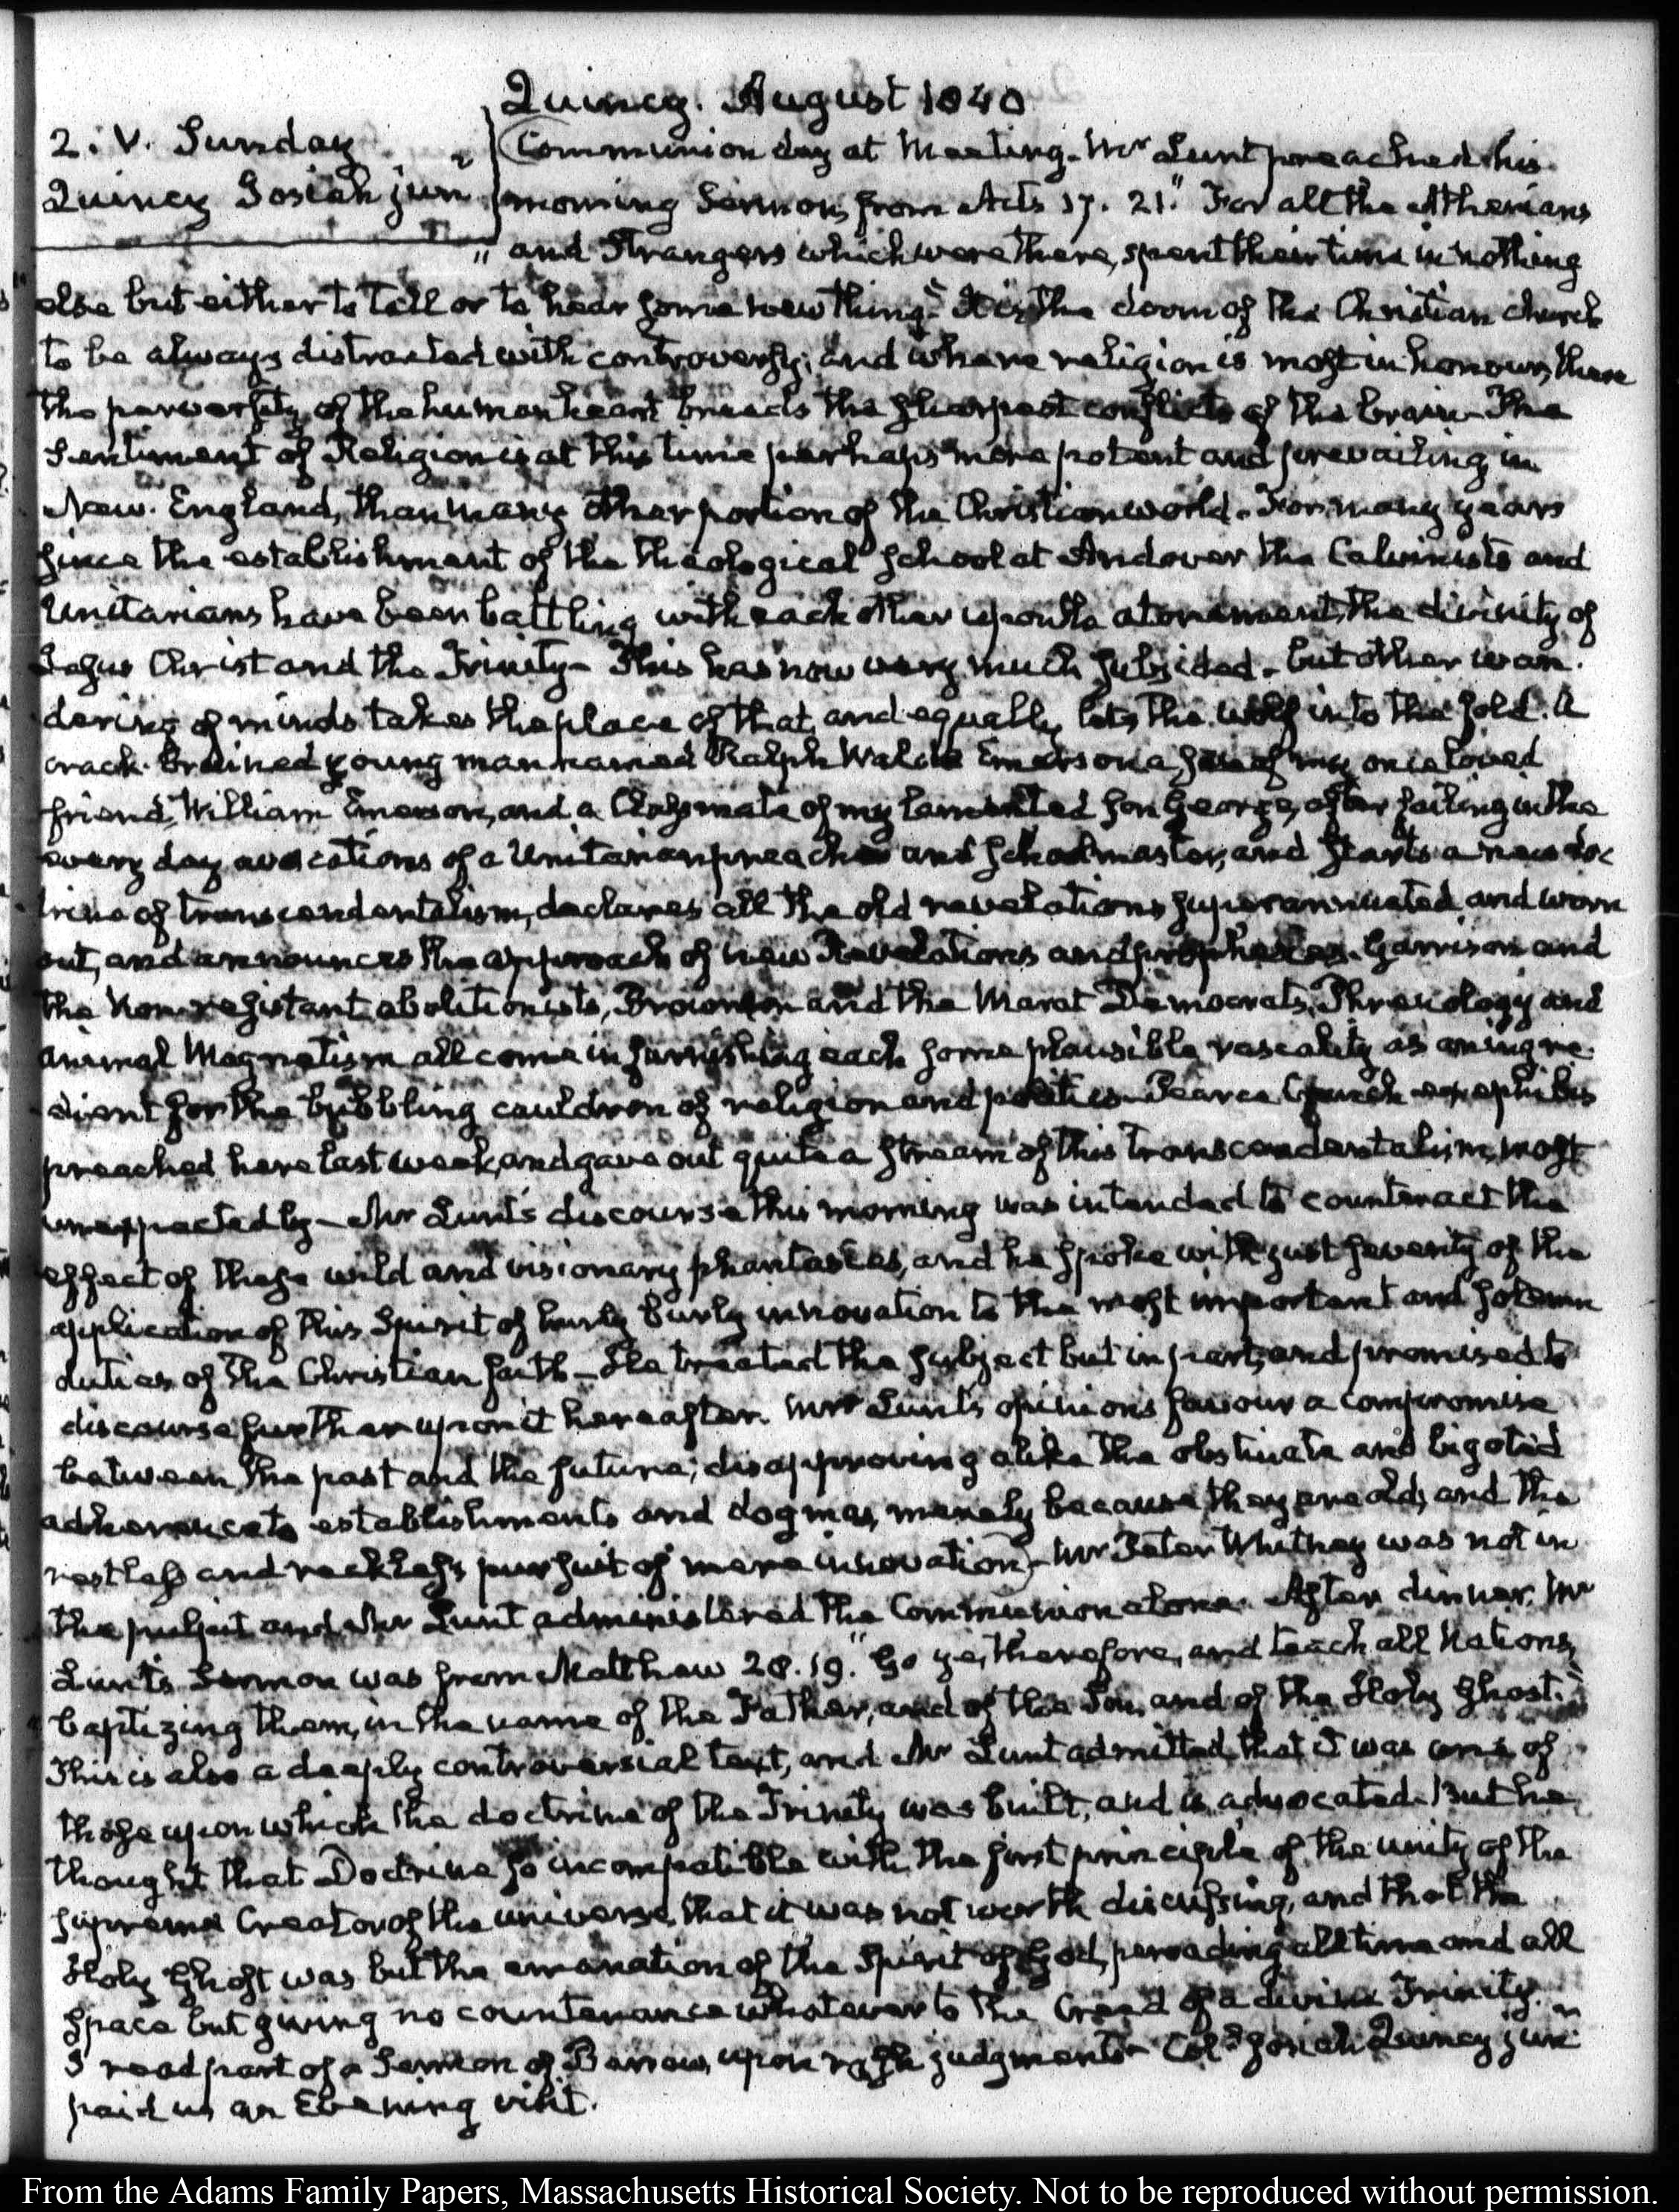 Quincy. August 1840
2. V. Sunday
Quincy Josiah junr
Communion day at Meeting. Mr Lunt preached his
morning Sermon, from Acts 17. 21. "For all the Athenians
" and Strangers which were there, spent their time in nothing
else but either to tell or to hear some new thing" It is the doom of the Christian church
to be always distracted with controversy, and where religion is most in honour, there
the perversity of the human heart breeds the sharpest conflicts of the brain. The
Sentiment of Religion is at this time perhaps more potent and prevailing in
New. England, than in any other portion of the Christian world. For many years
since the establishment of the theological school at Andover the Calvinists and
Unitarians have been battling with each other upon the atonement, the divinity of
Jesus Christ and the Trinity. This has now very much subsided. but other wan.
dering of minds takes the place of that, and equally lets the wolf into the fold. A
crack. brained young man named Ralph Waldo Emerson a son of my once loved
friend William Emerson, and a Classmate of my lamented Son George, after failing in the
every day avocations of a Unitarian preacher and schoolmaster, and starts a new doc
trine of transcendentalism, declares all the old revelations superannuated and worn
out, and announces the approach of new Revelations and prophecies. Garrison and
the Non-resistant abolitionists, Brownson and the Marat Democrats, Phrenology and
animal Magnetism all come in furnishing each some plausible rascality as an ingre.
dient for the bubbling cauldron of religion and politics. Pearce Church ex ephibis
preached here last week, and gave out quite a stream of this transcendentalism, most
unexpectedly — Mr Lunt's discourse this morning was intended to counteract the
effect of these wild and visionary phantasies, and he spoke with just severity of the
application of this Spirit of hurly burly innovation to the most important and solemn
duties of the Christian faith — He treated the subject but in part, and promised to
discourse further upon it hereafter. Mr Lunt's opinions favour a compromise
between the past and the future; disapproving alike the obstinate and bigoted
adherence to establishments and dogmas, merely because they are old, and the
restless and reckless pursuit of mere innovation) — Mr Peter Whitney was not in
the pulpit and Mr Lunt administered the Communion alone. After dinner, Mr
Lunt's Sermon was from Matthew 28. 19. "Go ye, therefore, and teach all Nations,
baptizing them, in the name of the Father, and of the Son, and of the Holy Ghost."
This is also a deeply controversial text, and Mr Lunt admitted, that it was one of
those upon which the doctrine of the Trinity was built, and is advocated. But he
thought that Doctrine so incompatible with the first principle of the unity of the
supreme Creator of the universe, that it was not worth discussing, and that the
Holy Ghost was but the emanation of the Spirit of God, pervading all time and all
space but giving no countenance whatever to the Creed of a divine Trinity.
I read part of a Sermon of Barrow, upon rash judgments. Col. Josiah Quincy junr
paid us an Evening visit.
From the Adams Family Papers, Massachusetts Historical Society. Not to be reproduced without permission.